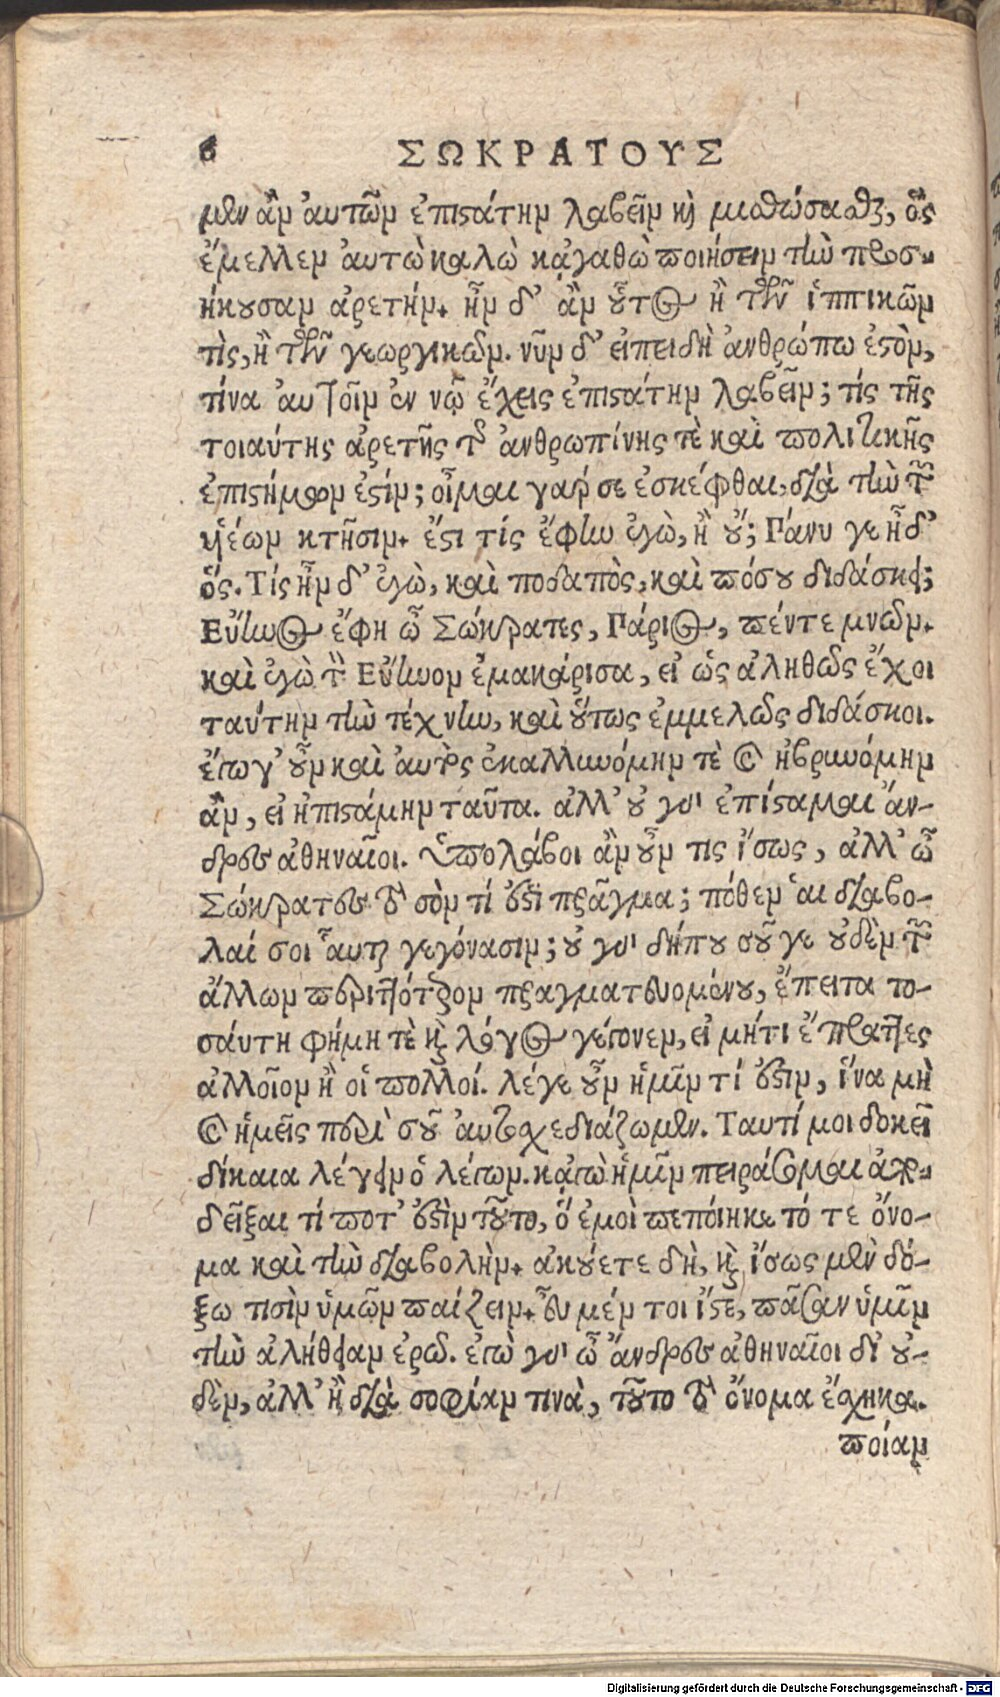 6 ΣΩΚΡΑΤΟΥΣ
μὲν ἂν αὐτῶν ἐπιστάτην λαβεῖν καὶ μισθώσασθαι, ὃς
ἔμελλεν αὐτὼ καλὼ κἀγαθὼ ποιήσειν τὴν προσ-
ήκουσαν ἀρετήν. ἦν δ' ἂν οὗτος ἢ τῶν ἱππικῶν
τὶς, ἢ τῶν γεωργικῶν. νῦν δ' ἐπειδὴ ἀνθρώπω ἐστὸν,
τίνα αὐτοῖν ἐν νῷ ἔχεις ἐπιστάτην λαβεῖν; τίς τῆς
τοιαύτης ἀρετῆς τῆς ἀνθρωπίνης τὲ καὶ πολιτικῆς
ἐπιστήμων ἐστίν; οἶμαι γάρ σε ἐσκέφθαι, διὰ τὴν τῶν
υἱέων κτῆσιν. ἔστι τίς ἔφην ἐγὼ, ἢ οὔ; Πάνυ γε ἦ δ'
ὅς. Τίς ἦν δ' ἐγὼ, καὶ ποδαπὸς, καὶ πόσου διδάσκει;
Εὔηνος ἔφη ὦ Σώκρατες, Πάριος, πέντε μνῶν.
καὶ ἐγὼ τὸν Εὔηνον ἐμακάρισα, εἰ ὡς ἀληθῶς ἔχοι
ταύτην τὴν τέχνην, καὶ οὕτως ἐμμελῶς διδάσκοι.
ἔγωγ' οὖν καὶ αὐτὸς ἐκαλλυνόμην τὲ καὶ ἡβρυνόμην
ἂν, εἰ ἠπιστάμην ταῦτα. ἀλλ' οὐ γὰρ ἐπίσταμαι ἄν-
δρες ἀθηναῖοι. Ὑπολάβοι ἂν οὖν τις ἴσως, ἀλλ' ὦ
Σώκρατες τὸ σὸν τί ἐστι πρᾶγμα; πόθεν αἱ διαβο-
λαί σοι αὗται γεγόνασιν; οὐ γὰρ δήπου σοῦ γε οὐδὲν τῶν
ἄλλων περιττότερον πραγματευομένου, ἔπειτα το-
σαύτη φήμη τὲ καὶ λόγος γέγονεν, εἰ μήτι ἔπραττες
ἀλλοῖον ἢ οἱ πολλοί. λέγε οὖν ἡμῖν τί ἐστιν, ἵνα μὴ
καὶ ἡμεῖς περὶ σοῦ αὐτοσχεδιάζωμεν. Ταυτί μοι δοκεῖ
δίκαια λέγειν ὁ λέγων. κἀγὼ ἡμῖν πειράσομαι ἀπο-
δεῖξαι τί ποτ' ἐστὶν τοῦτο, ὅ ἐμοὶ πεπόιηκε τό τε ὄνο-
μα καὶ τὴν διαβολὴν. ἀκούετε δὴ, καὶ ἴσως μὲν δό-
ξω τισὶν ὑμῶν παίζειν. εὖ μέν τοι ἴστε, πᾶσαν ὑμῖν
τὴν ἀλήθειαν ἐρῶ. ἐγὼ γὰρ ὦ ἄνδρες ἀθηναῖοι δι' οὐ-
δὲν, ἀλλ' ἢ διὰ σοφίαν τινὰ, τοῦτο τὸ ὄνομα ἔσχηκα.
ποίαν
Digitalisierung gefördert durch die Deutsche Forschungsgemeinschaft - DFG